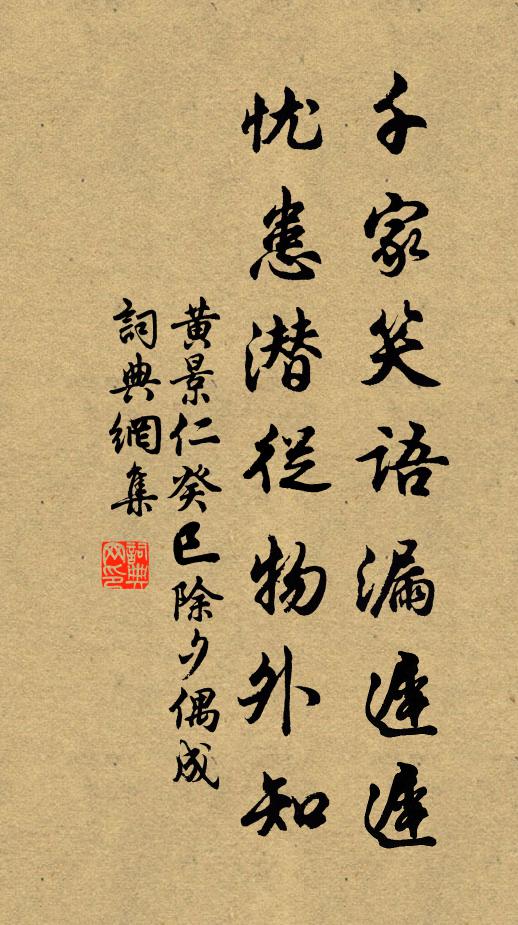 千家笑语漏遲遲
忧患潜從物外知
黄景仁癸巳除夕偶成
詞典網集
詞典网印